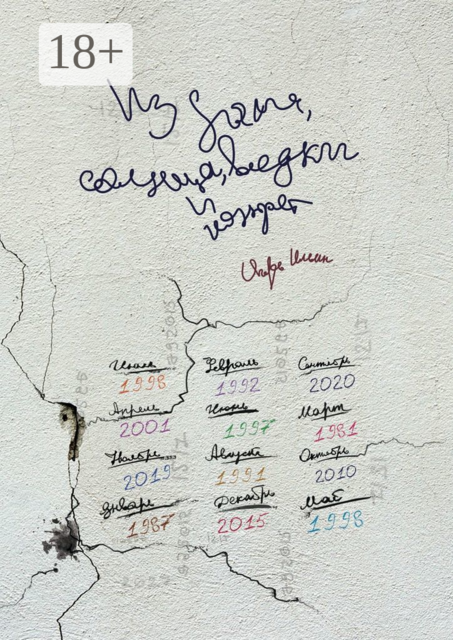 18+
Из
солнца, водки
и
конфет
Игорь
Июль Февраль Сентябрь
1998 1992 2020
Апрель Июнь Март
2001 1997 1981
Ноябрь Август Октябрь
2019 1991 2010
Январь Декабрь Май
1987 2015 1998